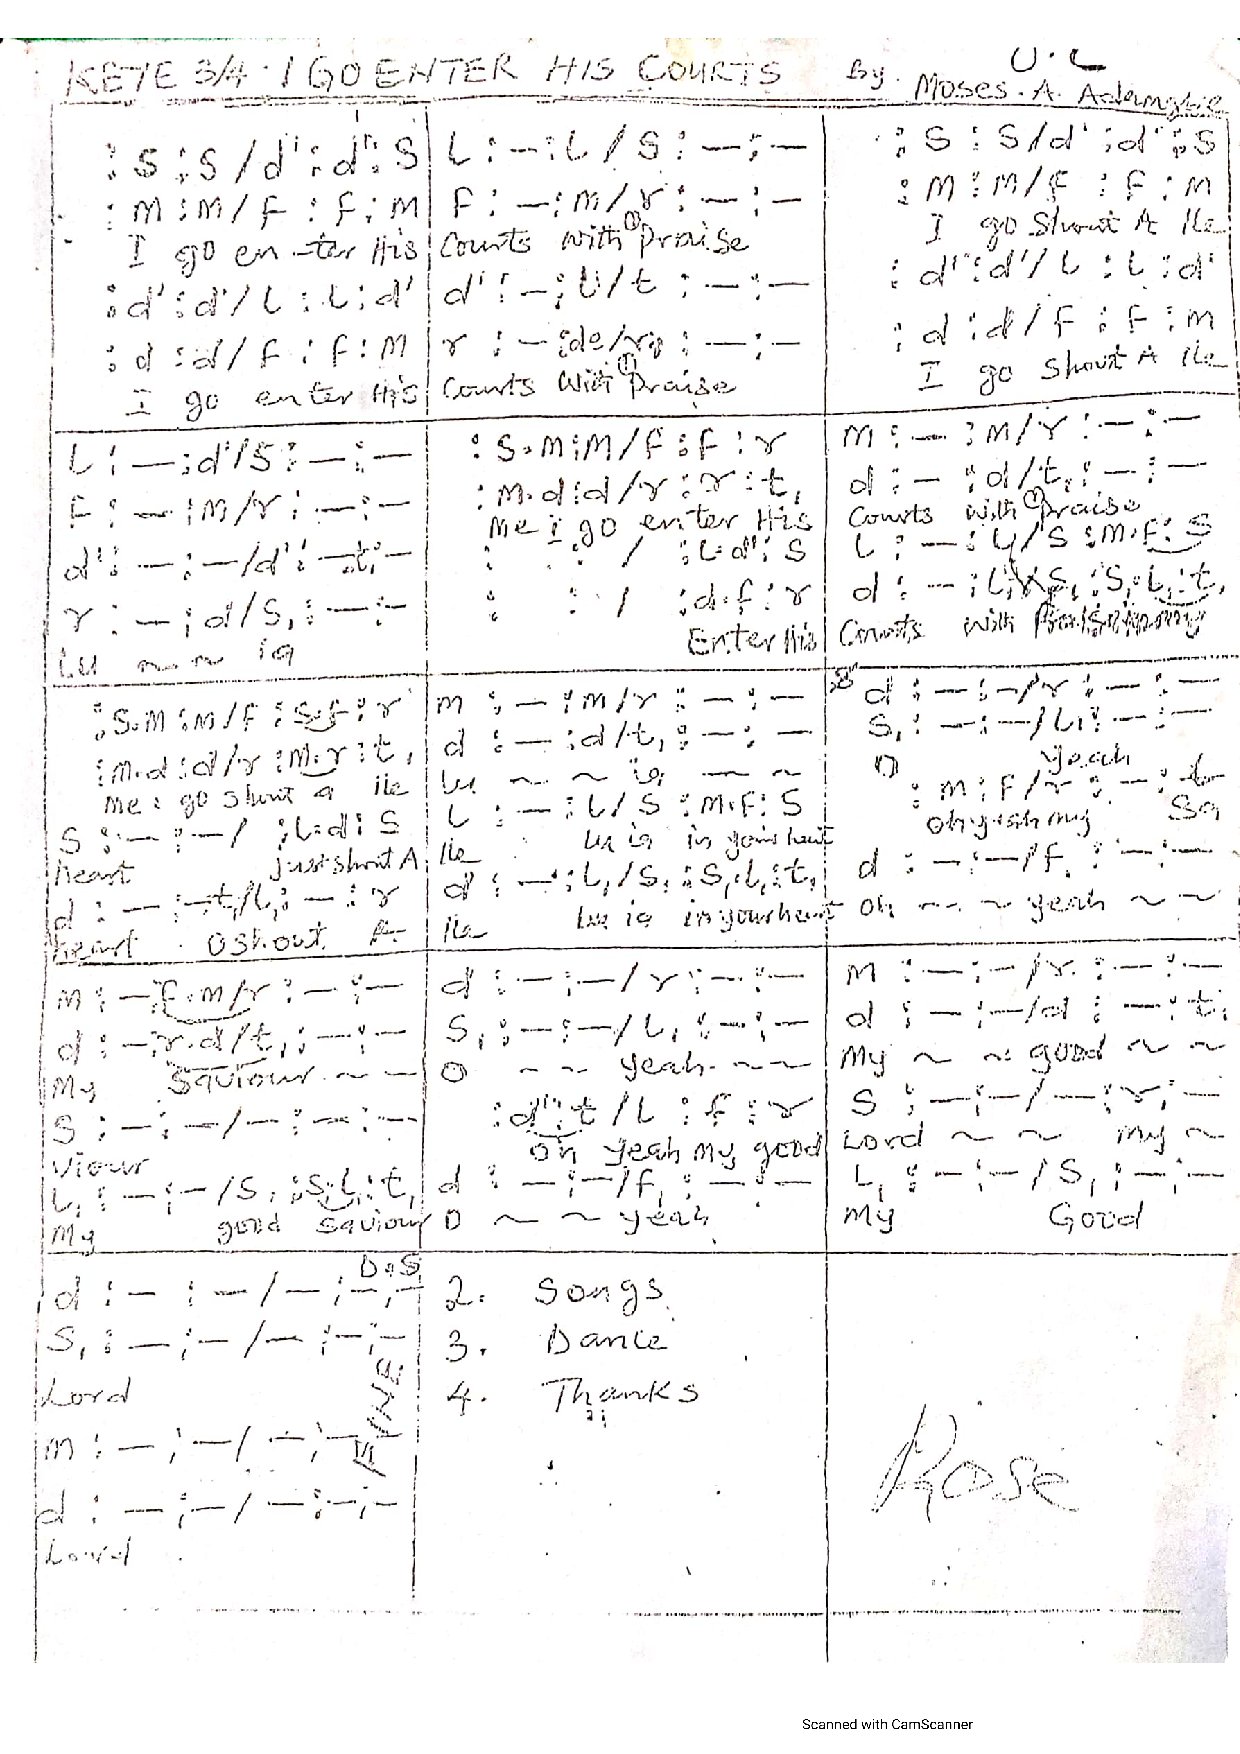 KETE 3/4. I GO ENTER HIS COURTS By. U.C
Moses. A.
: S : S / d' : d' : S
: M : M / F : F : M
I go en-ter His
: d' : d' / L : L : d'
: d : d / F : F : M
I go enter His
L : — : L / S : — : —
F : — : m / r : — : —
Courts with ① Praise
d' : — : L / t : — : —
r : — : de / r : — : —
Courts With ① Praise
: S : S / d' : d' : S
: M : M / F : F : M
I go Shout A lle
: d' : d' / L : L : d'
: d : d / F : F : M
I go Shout A lle
L : — : d' / S : — : —
F : — : M / r : — : —
d' : — : — / d' : — t : —
r : — : d / S, : — : —
Lu ~ ~ ia
: S.M : M / F : F : r
: M.d : d / r : r : t,
Me I go enter His
: : / : L.d' : S
: : / : d.f : r
Enter His
M : — : M / r : — : —
d : — : d / t, : — : —
Courts with ① Praise
L : — : L / S : M.F : S
d : — : L, / S, : S,.L, : t,
Courts with
: S.M : M / F : S.F : r
: M.d : d / r : M.r : t,
Me I go Shout a lle
S : — : — / : L.d : S
heart just shout A
d : — : — t, / L, : — : r
heart O shout A
m : — : m / r : — : —
d : — : d / t, : — : —
lu ~ ~ ia — ~
L : — : L / S : M.F : S
lle lu ia in your heart
d : — : L, / S, : S,.L, : t,
lle lu ia in your heart
:S: d : — : — / r : — : —
S, : — : — / L, : — : —
O yeah
: m : F / r : — : t
oh yeah my Sa
d : — : — / f, : — : —
Oh ~ ~ ~ yeah ~ ~
m : — : F.m / r : — : —
d : — : r.d / t, : — : —
My Saviour ~ — —
S : — : — / — : — : —
Viour
L, : — : — / S, : S,.L, : t,
My good Saviour
d : — : — / r : — : —
S, : — : — / L, : — : —
O ~ ~ yeah ~ ~
: d' : t / L : f : r
oh yeah My good
d : — : — / f, : — : —
O ~ ~ ~ yeah
M : — : — / r : — : —
d : — : — / d : — : t,
My ~ ~ good ~ ~
S : — : — / — : r : —
Lord ~ ~ My ~
L, : — : — / S, : — : —
My Good
D.S
d : — : — / — : — : —
S, : — : — / — : — : —
Lord
m : — : — / — : — : —
FINE
d : — : — / — : — : —
Lord
2. Songs
3. Dance
4. Thanks
Rose
Scanned with CamScanner